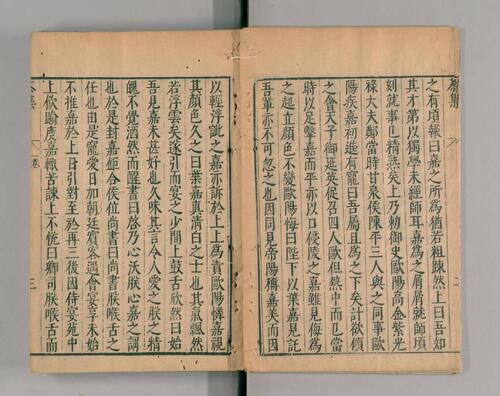 之有頃報曰嘉之所爲猶若粗疎然上曰吾知
其才第以獨學未經師耳嘉爲之屑屑就師頃
刻就事已精熟矣上乃勅御史歐陽高金紫光
祿大夫鄭當時甘泉侯陳平三人與之同事歐
陽疾嘉初進有寵曰吾屬且爲之下矣計欲傾
之會天子御延英促召四人歐但熱中而已當
時以足擊嘉而平亦以口侵陵之嘉雖見侮爲
之起立顔色不變歐陽悔曰陛下以葉嘉見託
吾輩亦不可忽之也因同見帝陽稱嘉美而因
以輕浮訿之嘉亦訴於上上爲責歐陽憐嘉視
其顔色久之曰葉嘉真清白之士也其氣飄然
若浮雲矣遂引而宴之少間上鼓舌欣然曰始
吾見嘉未甚好也久味其言令人愛之朕之精
魄不覺洒然而醒書曰啓乃心沃朕心嘉之謂
也於是封嘉鉅合侯位尚書曰尚書朕喉舌之
任也由是寵愛日加朝廷賓客遇會宴享未始
不推嘉於上日引對至於再三後因侍宴苑中
上飲踰度嘉輒苦諫上不悅曰卿司朕喉舌
三